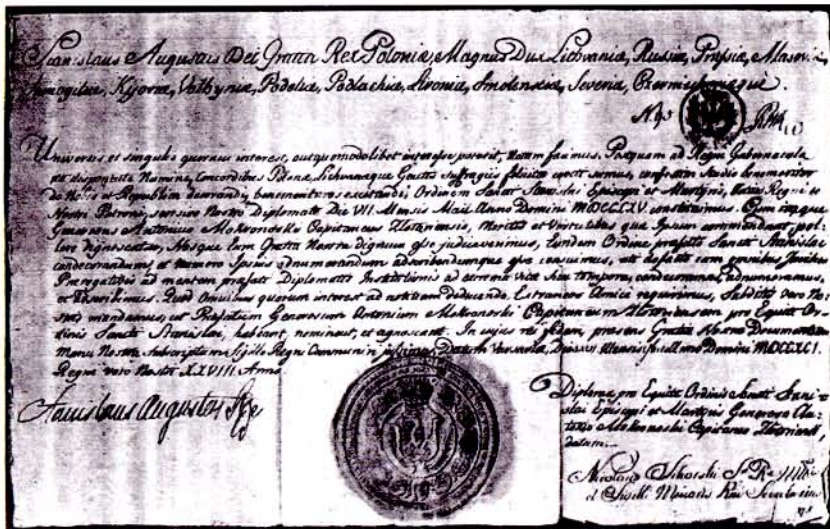 Stanislaus Augustus Dei Gratia Rex Poloniæ, Magnus Dux Lithvaniæ, Russiæ, Prussiæ, Masoviæ,
Samogitiæ, Kijoviæ, Volhyniæ, Podoliæ, Podlachiæ, Livoniæ, Smolensciæ, Severiæ, Czerniechoviæque.
Universis et singulis quorum interest, aut quomodolibet interesse poterit, notum facimus. Postquam ad Regni Gubernacula
disponente Numine, Concordibus Polonæ Lithvanæque Gentis suffragiis feliciter evecti sumus, confestim studio benemeritos
de Nobis et Republica decorandi, benemerituros excitandi, Ordinem Sancti Stanislai Episcopi et Martyris,
Nostri Patroni, Nostro Diplomate Die VII. Mensis Maii Anno Domini MDCCLXV. constituimus. Cum itaque
Generosus Antonius Mokronoski Capitaneus meritis et virtutibus quæ Ipsum commendant,
Eum Gratia Nostra dignum esse judicavimus, Eundem Ordine præfati Sancti Stanislai
condecorandum, et numero Ipsius adnumerandum adscribendumque esse censuimus, uti de facto cum omnibus Juribus
Prærogativis ad mentem præfati Diplomatis Institutionis ad extrema vitæ Suæ tempora, condecoramus, adnumeramus,
et adscribimus. Quod Omnibus quorum interest ad notitiam deducendo, Extraneos Amice requirimus, Subditis vero No-
stris mandamus, ut Præfatum Generosum Antonium Mokronoski Capitaneum pro Equite Or-
dinis Sancti Stanislai, habeant, nominent, et agnoscant. In cujus rei fidem, præsens Gratiæ Nostræ Documentum
Manu Nostra subscriptum Sigillo Regni Communiri jussimus. Datum Varsaviæ, Die Mensis Anno Domini MDCCXCI.
Regni vero Nostri XXVIII. Anno.
Stanislaus Augustus Rex
Diploma pro Equite Ordinis Sancti Stanis-
lai Episcopi et Martyris Generoso An-
tonio Mokronoski Capitaneo
datum.
Nicolaus Sikorski